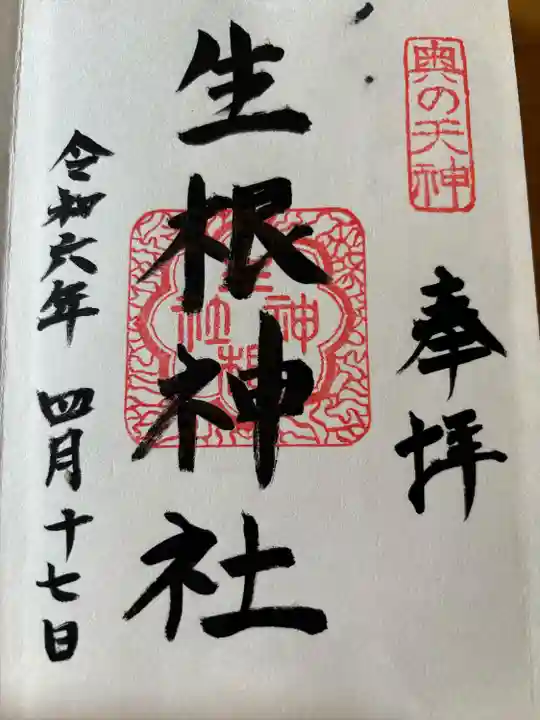 奥の天神
奉拝
生根神社
生根神社
令和六年 四月十七日